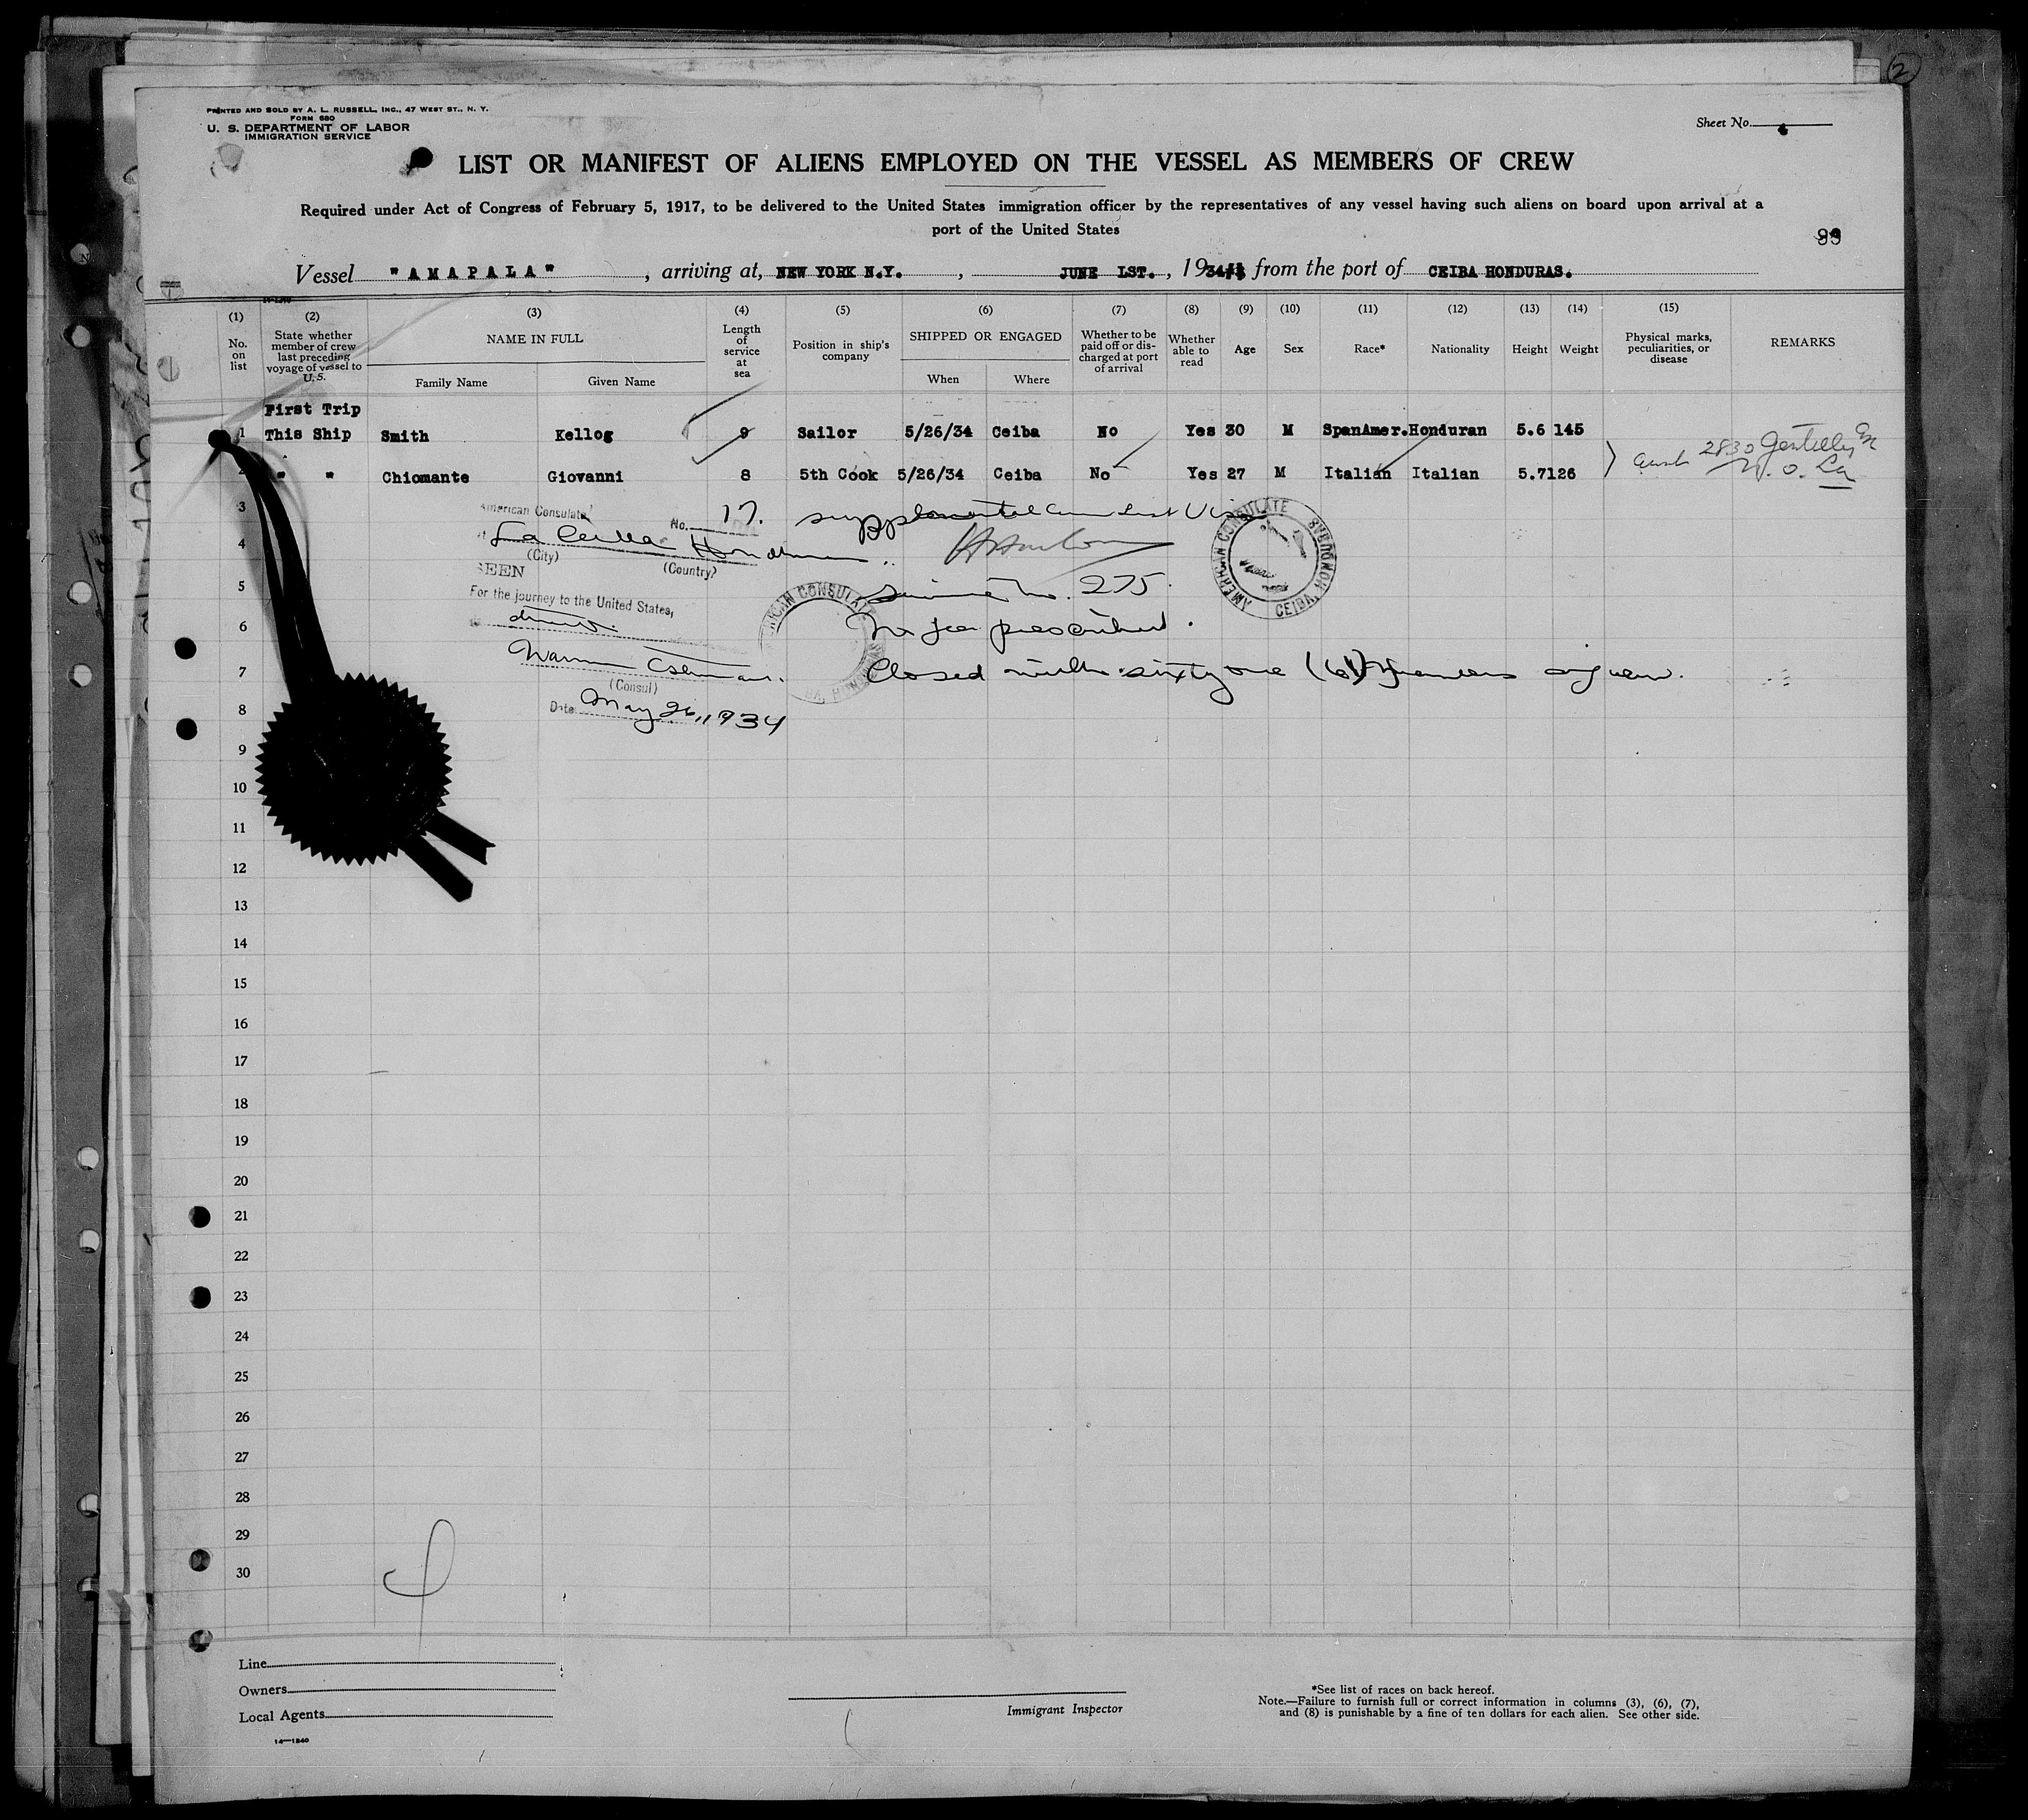 2
PRINTED AND SOLD BY A. L. RUSSELL, INC., 47 WEST ST., N. Y.
FORM 680
U. S. DEPARTMENT OF LABOR
IMMIGRATION SERVICE
Sheet No.
LIST OR MANIFEST OF ALIENS EMPLOYED ON THE VESSEL AS MEMBERS OF CREW
Required under Act of Congress of February 5, 1917, to be delivered to the United States immigration officer by the representatives of any vessel having such aliens on board upon arrival at a
port of the United States
Vessel "AMAPALA", arriving at, NEW YORK N.Y., JUNE 1ST., 1934 from the port of CEIBA HONDURAS.
(1) (2) (3) (4) (5) (6) (7) (8) (9) (10) (11) (12) (13) (14) (15)
No. on list
State whether member of crew last preceding voyage of vessel to U. S.
NAME IN FULL
Family Name Given Name
Length of service at sea
Position in ship's company
SHIPPED OR ENGAGED
When Where
Whether to be paid off or discharged at port of arrival
Whether able to read
Age
Sex
Race*
Nationality
Height
Weight
Physical marks, peculiarities, or disease
REMARKS
First Trip
1 This Ship Smith Kellog 9 Sailor 5/26/34 Ceiba No Yes 30 M SpanAmer. Honduran 5.6 145
2 " " Chiomante Giovanni 8 5th Cook 5/26/34 Ceiba No Yes 27 M Italian Italian 5.7 126
2830 Gentilly
N. O. La
3
American Consulate No. 17. supplemental Crew List Visa
4
La Ceiba Honduras
(City) (Country)
SEEN
5
Service No. 275.
For the journey to the United States,
6
direct
No fee prescribed.
7
Closed with sixty one (61) members of crew.
(Consul)
8
Date May 26, 1934
AMERICAN CONSULATE
CEIBA, HONDURAS
AMERICAN CONSULATE
9
10
11
12
13
14
15
16
17
18
19
20
21
22
23
24
25
26
27
28
29
30
Line
Owners
Local Agents
14—1240
Immigrant Inspector
*See list of races on back hereof.
Note.—Failure to furnish full or correct information in columns (3), (6), (7),
and (8) is punishable by a fine of ten dollars for each alien. See other side.